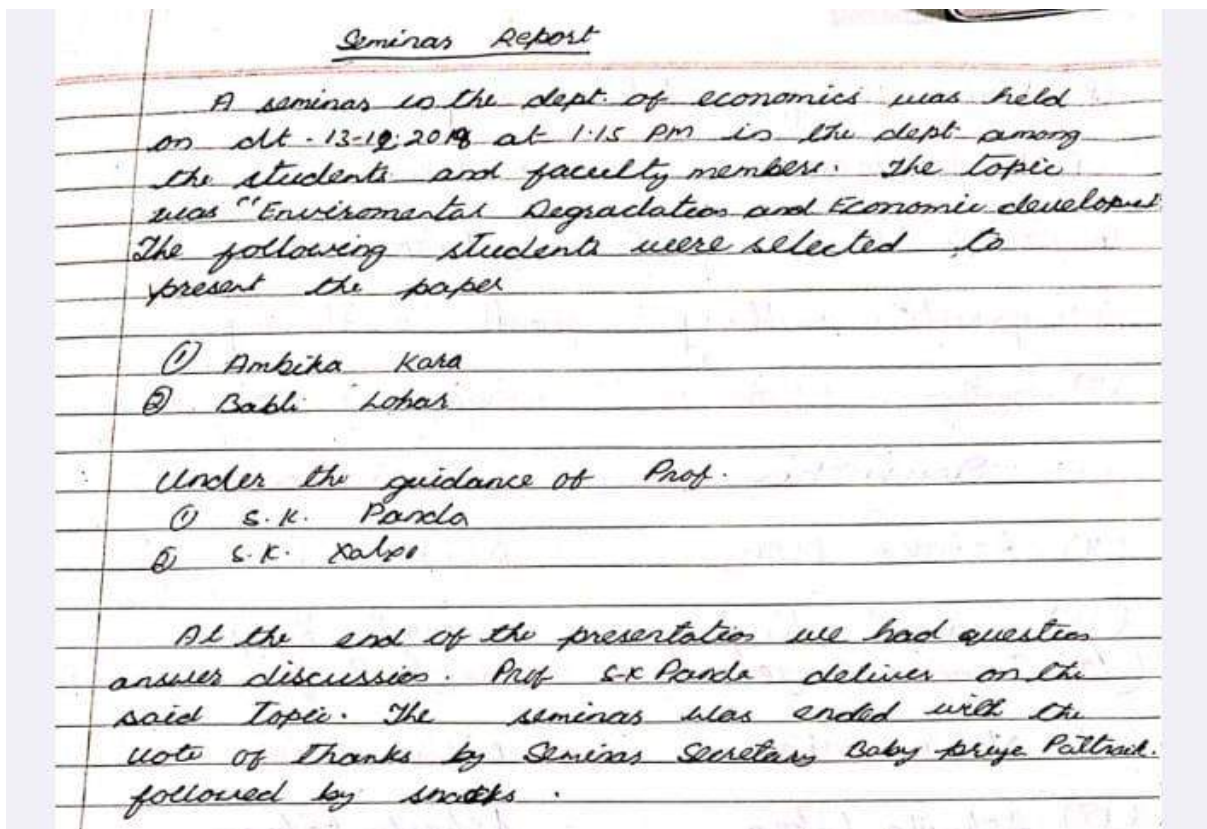 Seminar Report
A seminar in the dept. of economics was held
on dt - 13-12.2018 at 1.15 PM in the dept among
the students and faculty members. The topic
was "Enviromental Degradation and Economic developmet
The following students were selected to
present the paper
① Ambika Kara
② Babli Lohar
Under the guidance of Prof.
① S.K. Panda
② S.K. Xalxo
At the end of the presentation we had question
answer discussion. Prof S.K Panda deliver on the
said Topic. The seminar was ended with the
vote of Thanks by Seminar Secretary Baby priya
followed by snacks.